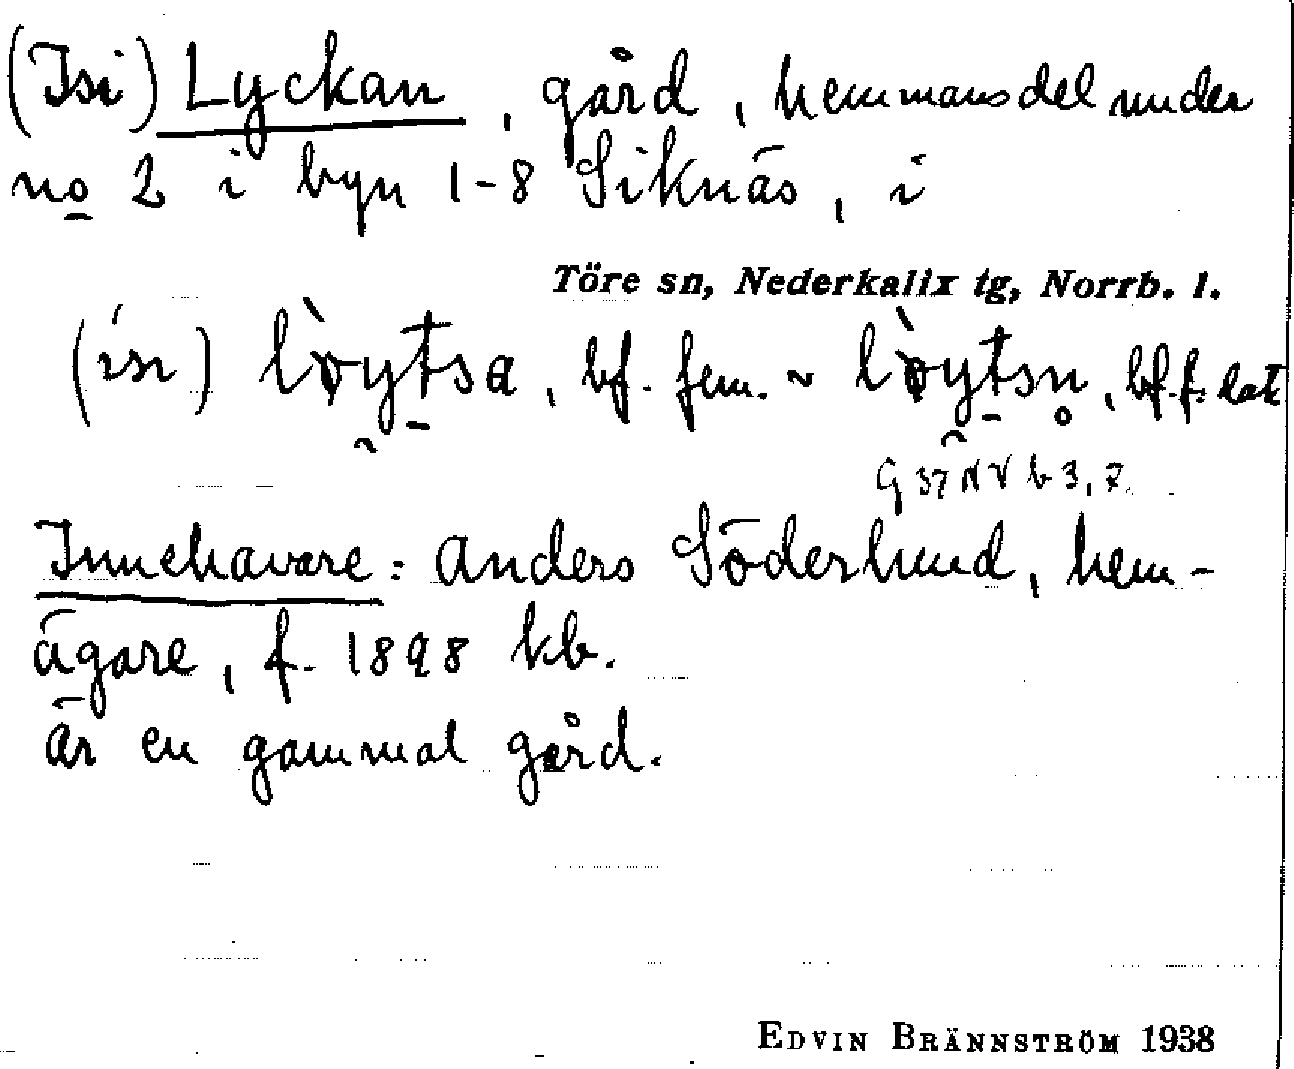 (Isi) Lyckan, gård, hemmansdel under
no 2 i byn 1-8 Siknäs, i
Töre sn, Nederkalix tg, Norrb. l.
(ísı) lòytsa, bf. fem. ~ lòytsn̥, bf. f. dat
G 37 NV b 3, 7.
Innehavare: Anders Söderlund, hem-
ägare, f. 1898 kb.
är en gammal gård.
EDVIN BRÄNNSTRÖM 1938